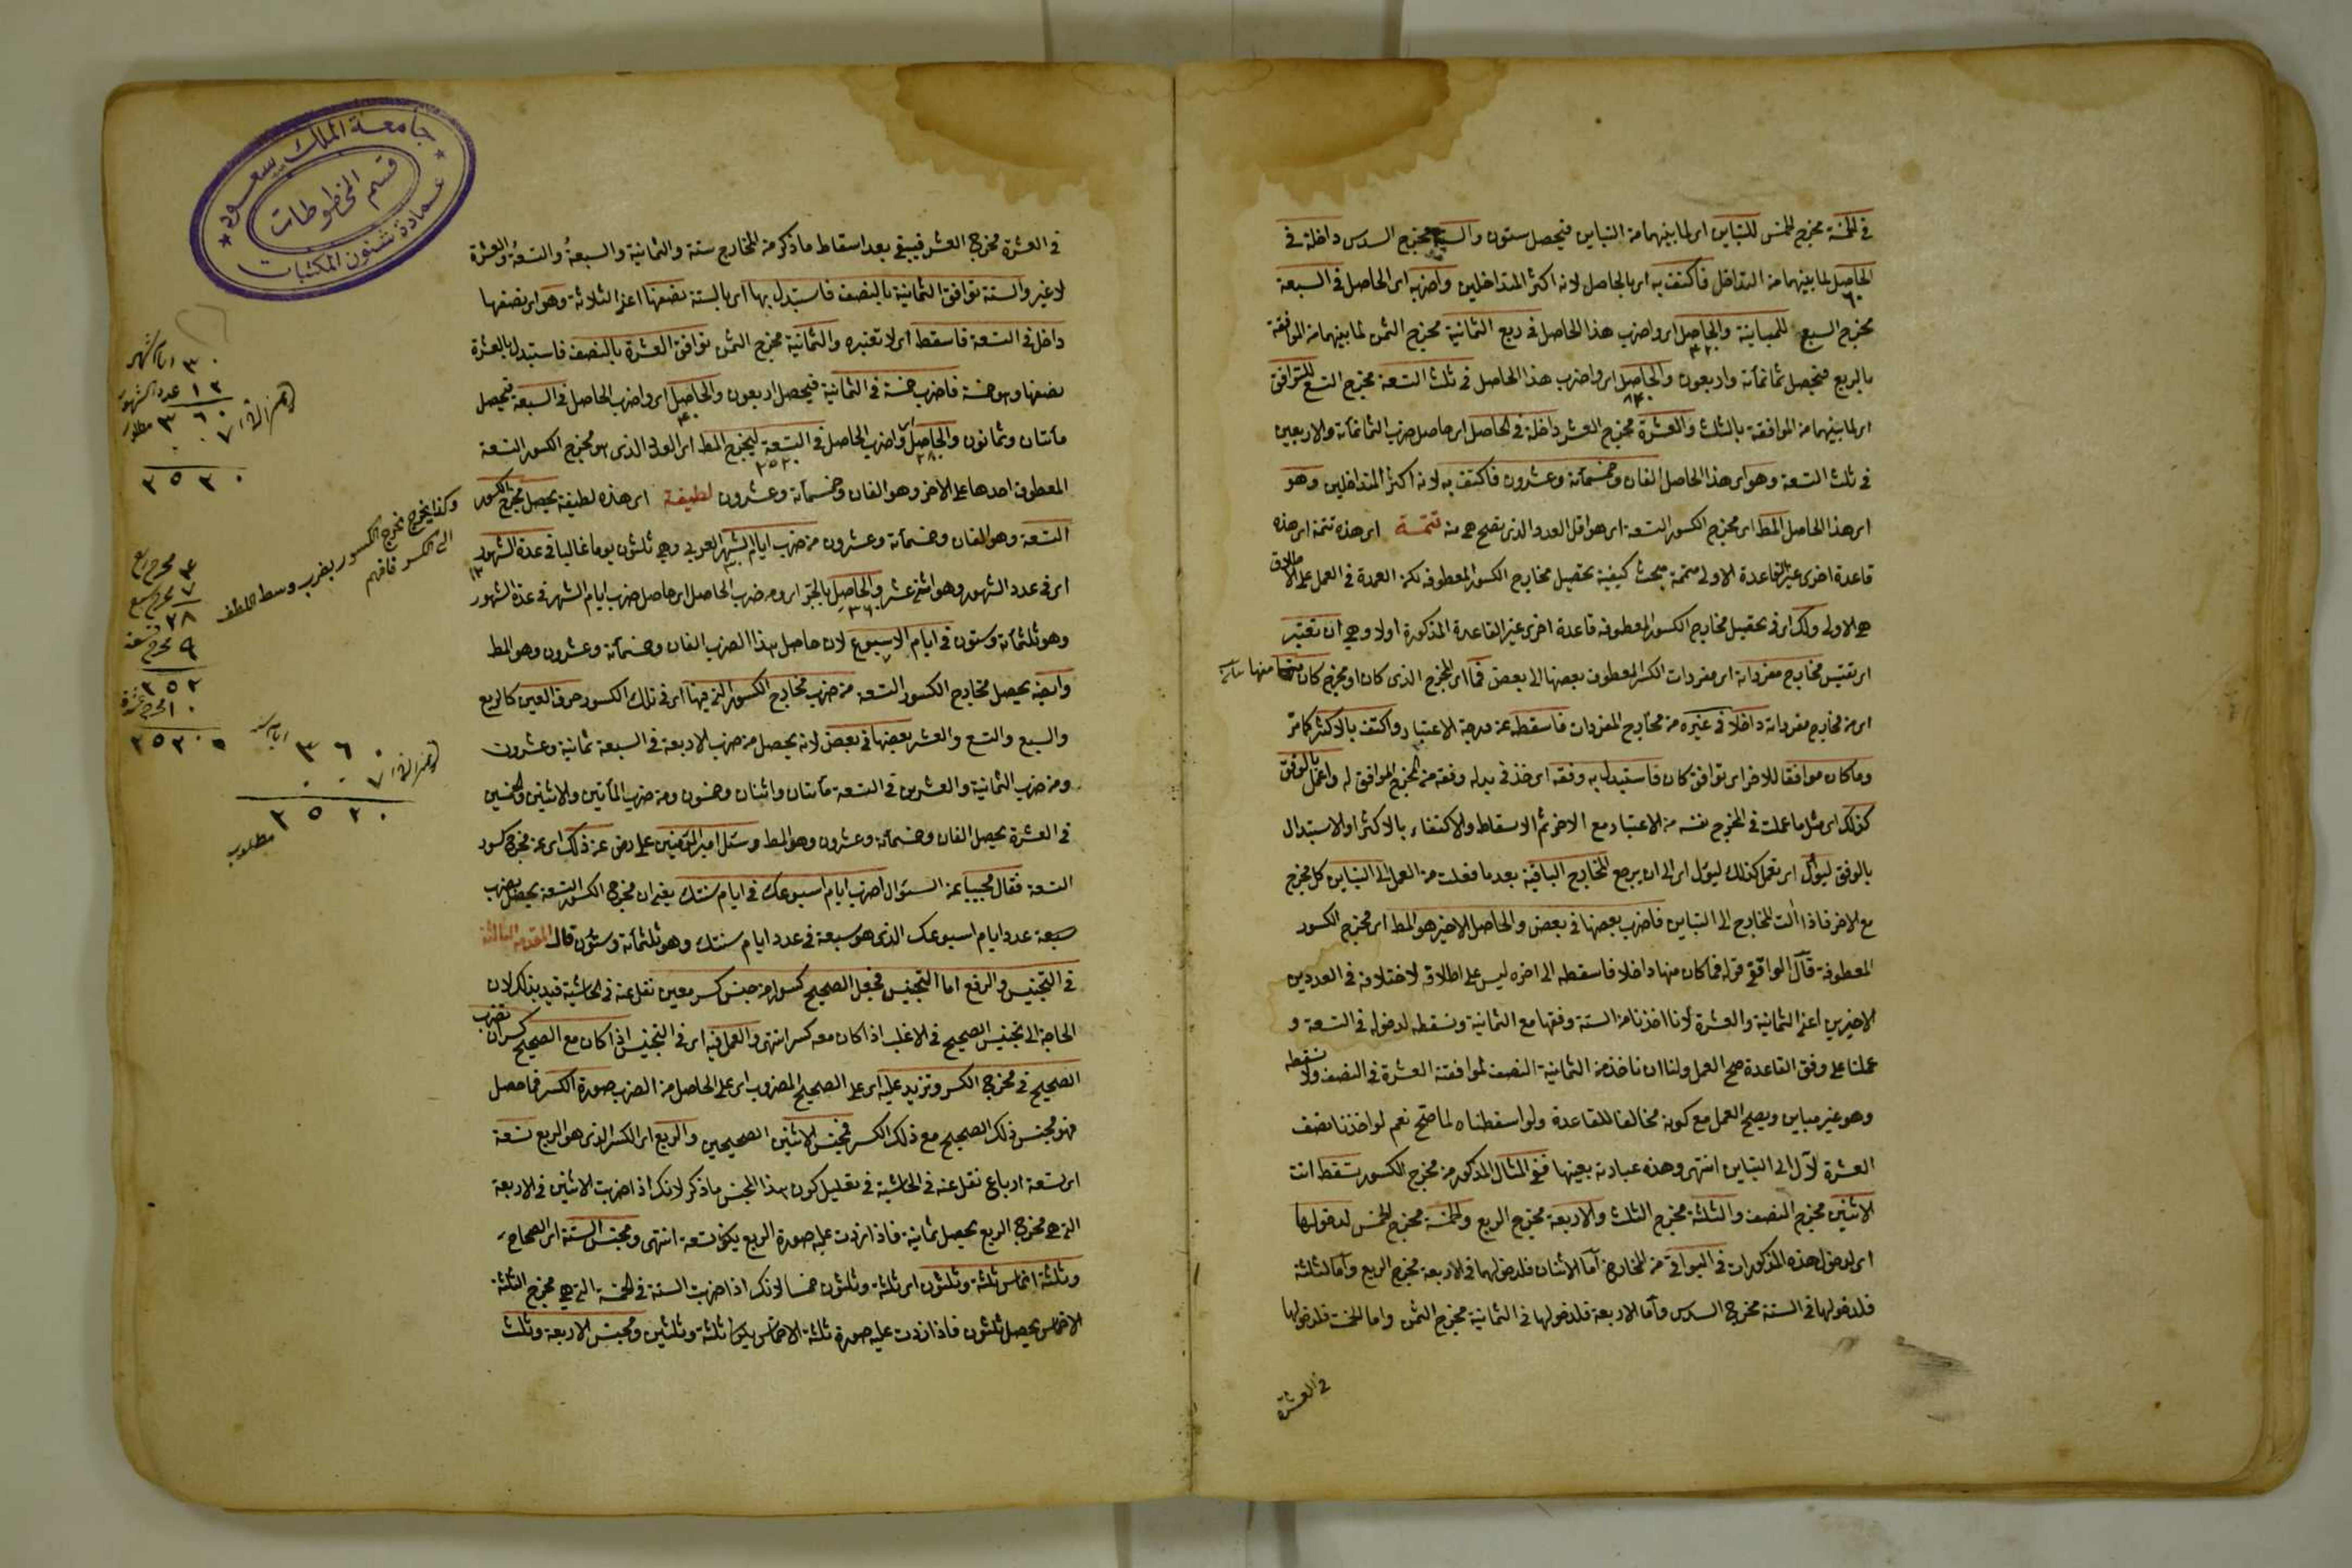 في الخمسة مخرج الخمس للتباين اى لما بينهما من التباين فيحصل ستون والستة مخرج السدس داخلة في
الحاصل لما بينهما من التداخل فاكتف به اى بالحاصل لانه اكثر المتداخلين واضربه اى الحاصل في السبعة
٦٠
مخرج السبع للمباينة والحاصل اى واضرب هذا الحاصل في ربع الثمانية مخرج الثمن لما بينهما من الموافقة
٤٢٠
بالربع فيحصل ثمانمأئة واربعون والحاصل اى واضرب هذا الحاصل في ثلث التسعة مخرج التسع للتوافق
٨٤٠
اى لما بينهما من الموافقة بالثلث والعشرة مخرج العشر داخلة في الحاصل اى حاصل ضرب الثمانمأئة والاربعين
في ثلث التسعة وهو اى هذا الحاصل الفان وخمسمأئة وعشرون فاكتف به لانه اكثر المتداخلين وهو
اى هذا الحاصل المط اى مخرج الكسور التسعة اى هو اقل العدد الذى تصح هى منه تتمة اى هذه تتمة اى هذه
قاعدة اخرى غير القاعدة الاولى متممة مبحث كيفية تحصيل مخارج الكسور المعطوفة لكن العمدة في العمل على الاطلاق
هى الاولى ولك اى في تحصيل مخارج الكسور المعطوفة قاعدة اخرى غير القاعدة المذكورة اولا وهى ان تعتبر
اى تقيس مخارج مفرداته اى مفردات الكسر المعطوف بعضها الى بعض فما اى المخرج الذى كان او مخرج كان منها
اى من مخارج مفرداته داخلا في غيره من مخارج المفردات فاسقطه عن درجة الاعتبار واكتف بالاكثر كما مر
وما كان موافقا للاخر اى توافق كان فاستبدل به وفقه اى خذ في بدله وفقه من المخرج الموافق له واعمل بالوفق
كذلك اى مثل ما عملت في المخرج نفسه من الاعتبار مع الاخر ثم الاسقاط والاكتفاء بالاكثر او الاستبدال
بالوفق ليؤل اى تعمل كذلك ليؤل اى الى ان يرجع المخارج الباقية بعد ما فعلت من العمل الى التباين كل مخرج
مع الاخر فاذا الت المخارج الى التباين فاضرب بعضها في بعض والحاصل الاخير هو المط اى مخرج الكسور
المعطوفة قال الواقفى قوله فما كان منها داخلا فاسقطه الى اخره ليس على اطلاقه لاختلافه في العددين
الاخيرين اعنى الثمانية والعشرة لأنا اخذنا من الستة وفقها مع الثمانية ونسقطه لدخوله في التسعة و
عملنا على وفق القاعدة صح العمل ولنا ان ناخذ من الثمانية النصف لموافقته العشرة في النصف ولا نسقطه
وهو غير مباين ويصح العمل مع كونه مخالفا للقاعدة ولو اسقطناه لما صح نعم لو اخذنا نصف
العشرة لآل الى التباين انتهى وهذه عبارته بعينها ففي المثال المذكور من مخرج الكسور تسقط انت
الاثنين مخرج النصف والثلثة مخرج الثلث والاربعة مخرج الربع والخمسة مخرج الخمس لدخولها
اى لدخول هذه المذكورات في البواقى من المخارج أما الاثنان فلدخولهما في الاربعة مخرج الربع وأما الثلثة
فلدخولها في الستة مخرج السدس وأما الاربعة فلدخولها في الثمانية مخرج الثمن واما الخمسة فلدخولها
في العشرة
جامعة الملك سعود
قسم المخطوطات
عمادة شئون المكتبات
في العشرة مخرج العشر فيبقى بعد اسقاط ما ذكر من المخارج ستة والثمانية والسبعة والتسعة والعشرة
لا غير والستة توافق الثمانية بالنصف فاستبدل بها اى بالستة نصفها اعنى الثلاثة وهو اى نصفها
داخل في التسعة فاسقط اى لا تعتبره والثمانية مخرج الثمن توافق العشرة بالنصف فاستبدل بالعشرة
نصفها وهو خمسة فاضرب خمسة في الثمانية فيحصل اربعون والحاصل اى واضرب الحاصل في السبعة فيحصل
٤٠
مأتان وثمانون والحاصل اى واضرب الحاصل في التسعة ليخرج المط اى العدد الذى هو مخرج الكسور التسعة
٢٨٠ ٢٥٢٠
المعطوف احدها على الاخر وهو الفان وخمسمأئة وعشرون لطيفة اى هذه لطيفة يحصل مخرج الكسور
التسعة وهو الفان وخمسمأئة وعشرون من ضرب ايام الشهر العربى وهى ثلثون يوما غالبا في عدة الشهور
٣٠ ١٢
اى في عدد الشهور وهو اثنى عشر والحاصل بالجر اى ومن ضرب الحاصل اى حاصل ضرب ايام الشهر في عدة الشهور
٣٦٠
وهو ثلثمأئة وستون في ايام الاسبوع لان حاصل هذا الضرب الفان وخمسمأئة وعشرون وهو المط
٧
وايضا يحصل مخارج الكسور التسعة من ضرب مخارج الكسور التى فيها اى في تلك الكسور حرف العين كالربع
والسبع والتسع والعشر بعضها في بعض لانه يحصل من ضرب الاربعة في السبعة ثمانية وعشرون
ومن ضرب الثمانية والعشرين في التسعة مأتان واثنان وخمسون ومن ضرب المأتين والاثنين والخمسين
في العشرة يحصل الفان وخمسمأئة وعشرون وهو المط وسئل امير المؤمنين على رض عن ذلك اى عن مخرج كسور
التسعة فقال مجيبا عن السؤال اضرب ايام اسبوعك في ايام سنتك يعنى ان مخرج الكسور التسعة يحصل بضرب
سبعة عدد ايام اسبوعك الذى هو سبعة في عدد ايام سنتك وهو ثلثمأئة وستون قال المقدمة الثالثة
في التجنيس والرفع اما التجنيس فجعل الصحيح كسورا من جنس كسر معين نقل عنه في الحاشية قيد بذلك لان
الحاجة الى تجنيس الصحيح في الاغلب اذا كان معه كسر انتهى والعمل فيه اى في التجنيس اذا كان مع الصحيح كسر ان تضرب
الصحيح في مخرج الكسر وتزيد عليه اى على الصحيح المضروب اى على الحاصل من الضرب صورة الكسر فما حصل
فهو مجنس ذلك الصحيح مع ذلك الكسر فمجنس الاثنين الصحيحين والربع اى الكسر الذى هو الربع تسعة
اى تسعة ارباع نقل عنه في الحاشية في تعليل كون هذا المجنس ما ذكر لانك اذا ضربت الاثنين في الاربعة
التى هى مخرج الربع يحصل ثمانية فاذا زدت عليه صورة الربع يكون تسعة انتهى ومجنس الستة اى الصحاح
وثلثة اخماس ثلثة وثلثون اى ثلثة وثلثون خمسا لانك اذا ضربت الستة في الخمسة التى هى مخرج الثلثة
الاخماس يحصل ثلثون فاذا زدت عليه صورة ثلثة الاخماس يكون ثلثة وثلثين ومجنس الاربعة وثلث
٣٠ ايام شهر
١٢ عدد الشهور
٣٦٠ مطلوب
٧
٢٥٢٠
وكذا يخرج مخرج الكسور بضرب وسط
الى الكسر فافهم
٤ مخرج ربع
٧ مخرج سبع
٢٨
٩ مخرج تسعة
٢٥٢
١٠ مخرج عشرة
٢٥٢٠
٣٦٠
٧
٢٥٢٠
مطلوب